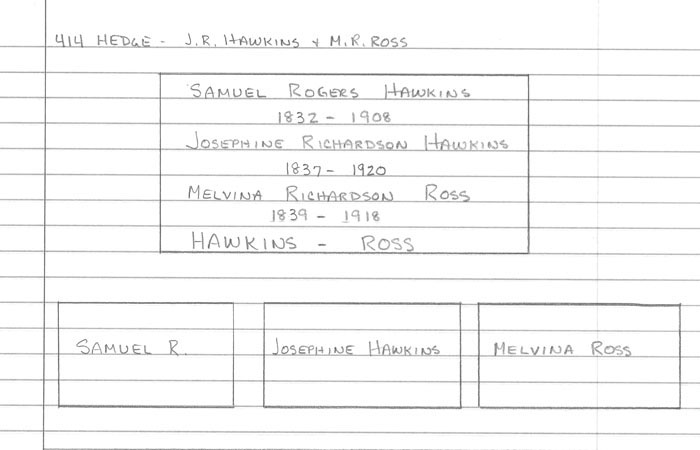 414 HEDGE - J.R. HAWKINS & M.R. ROSS
SAMUEL ROGERS HAWKINS
1832 - 1908
JOSEPHINE RICHARDSON HAWKINS
1837 - 1920
MELVINA RICHARDSON ROSS
1839 - 1918
HAWKINS - ROSS
SAMUEL R.
JOSEPHINE HAWKINS
MELVINA ROSS